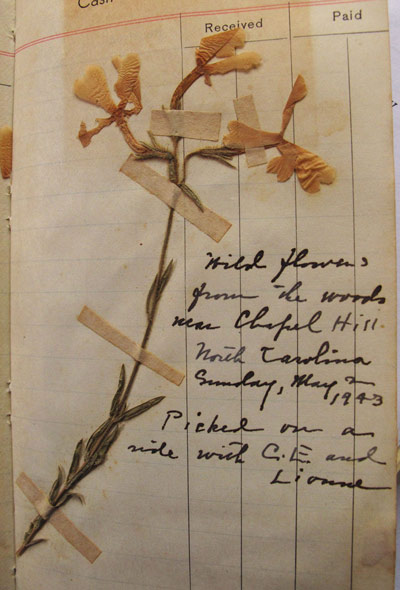 Cash
Received
Paid
Wild flowers
from the woods
near Chapel Hill
North Carolina
Sunday, May 2
1943
Picked on a
ride with C.E. and
Lionne